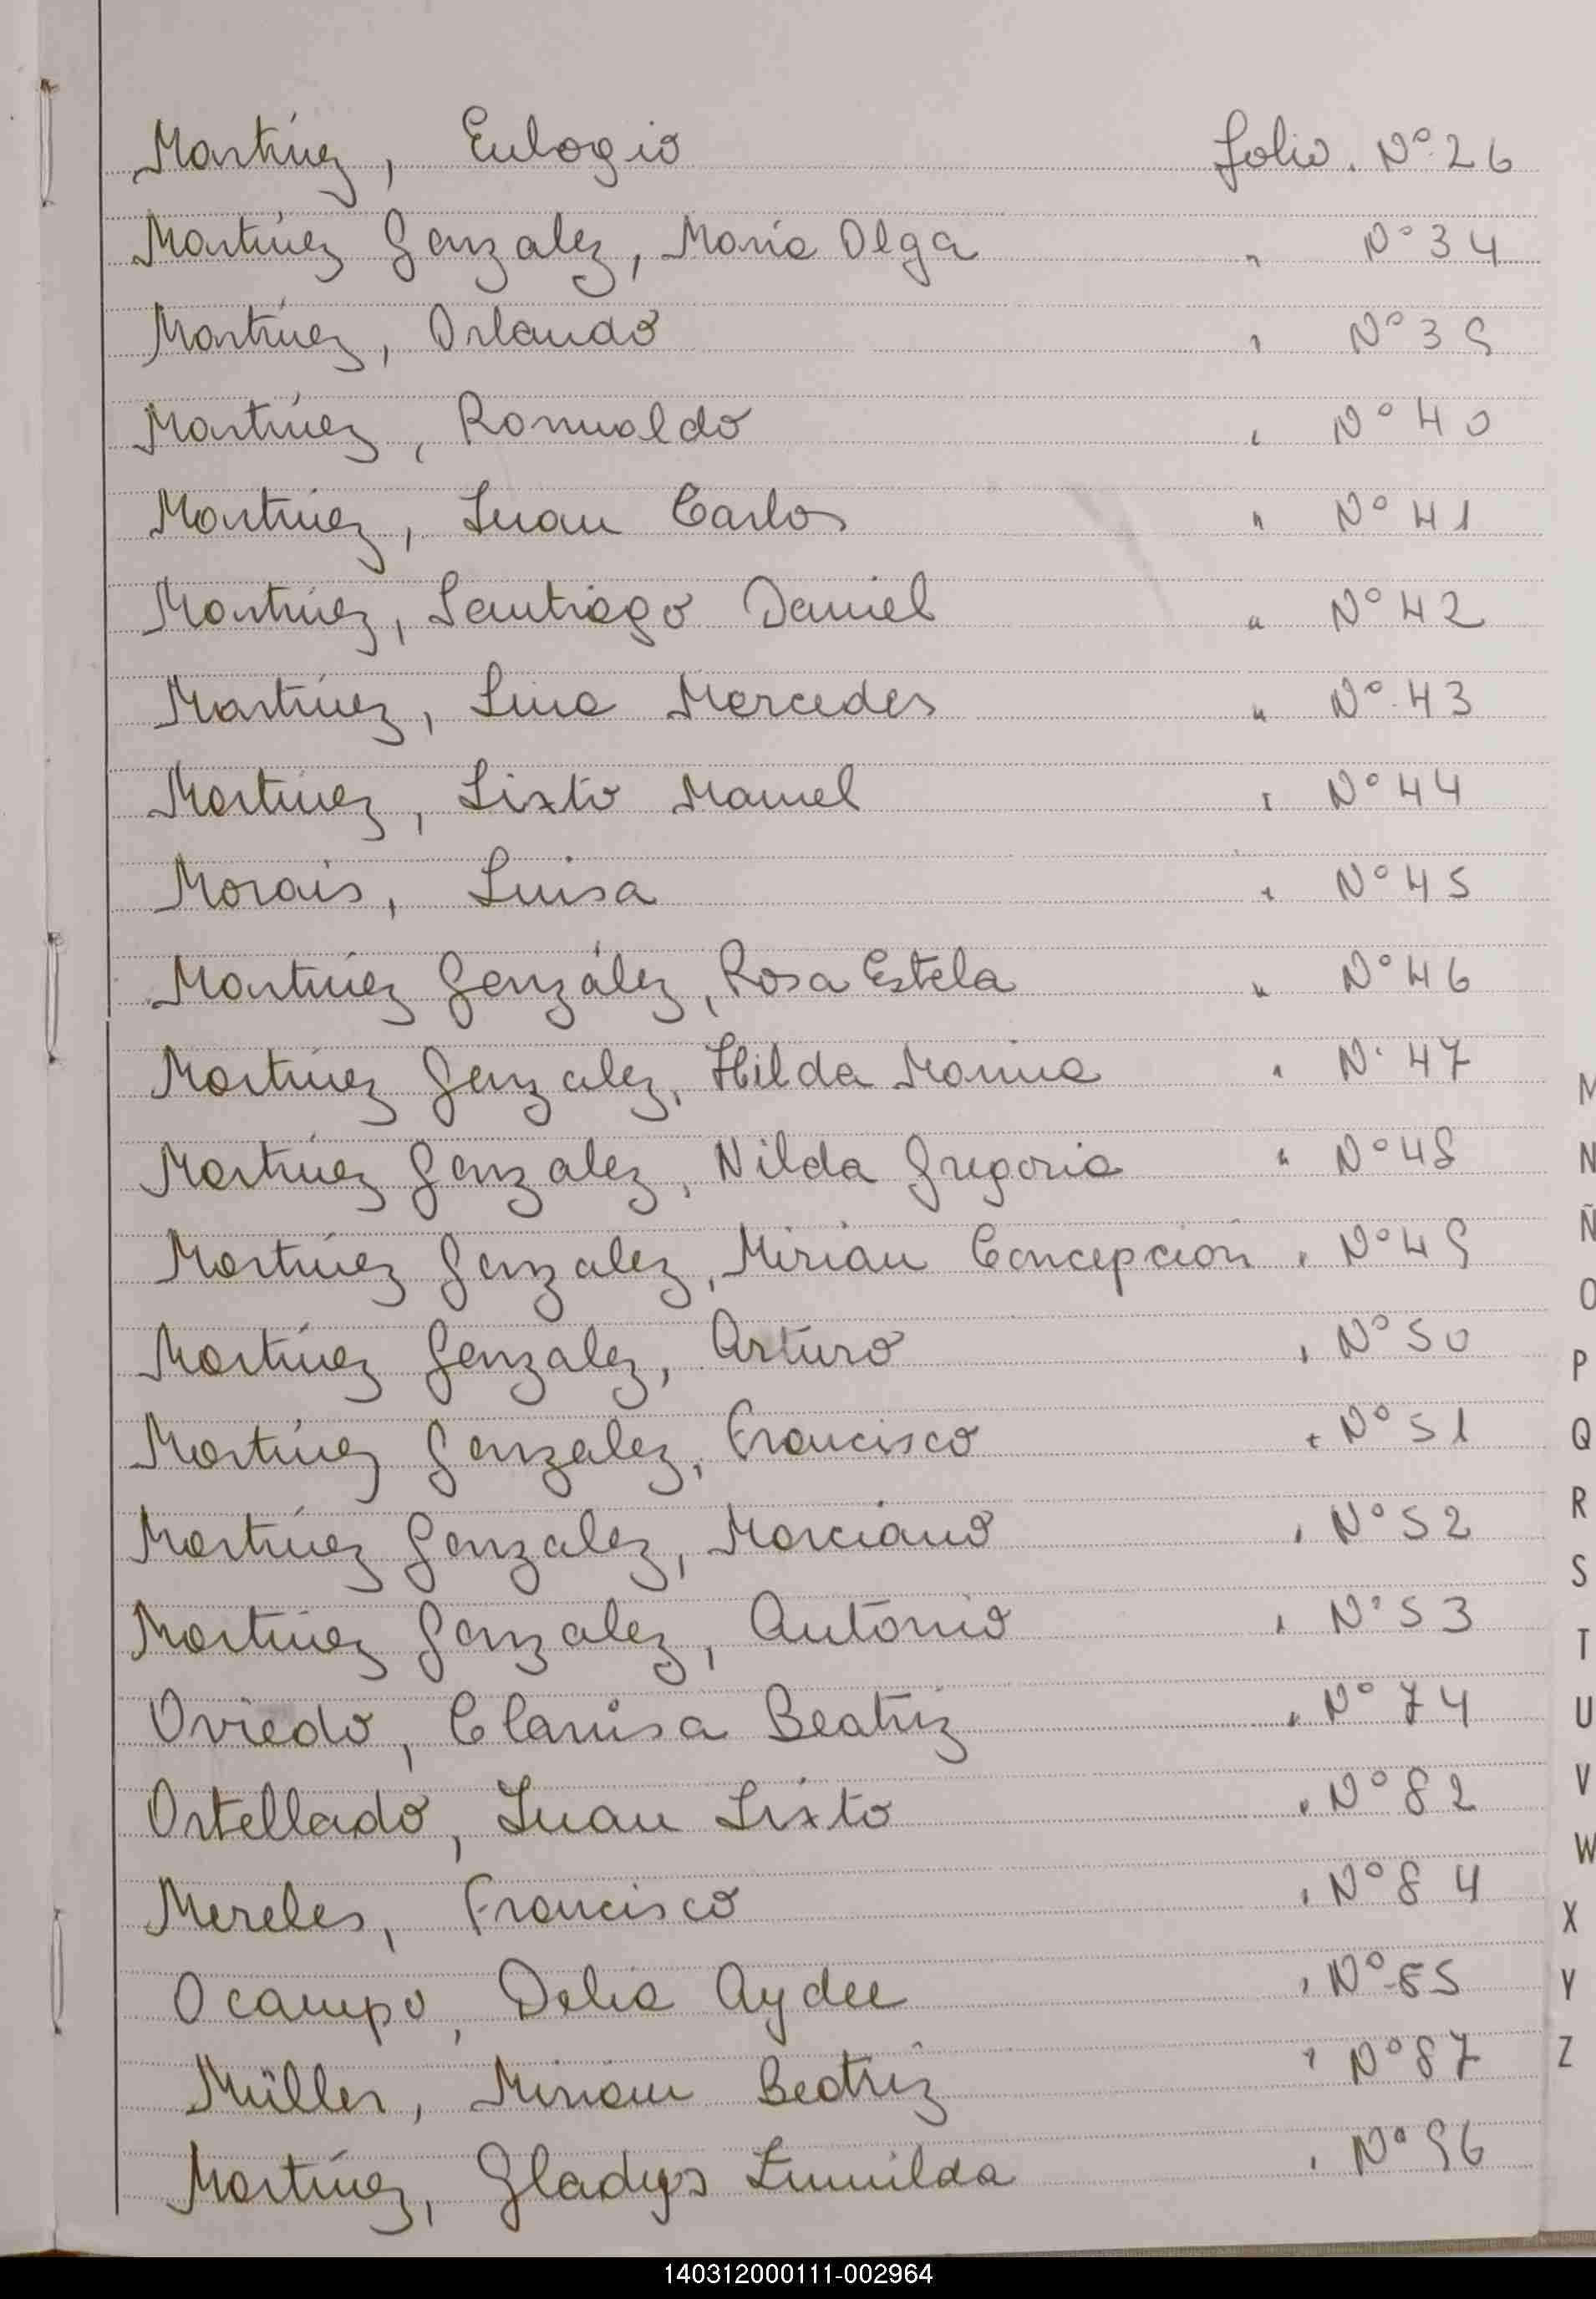 Martínez, Eulogio folio. Nº 26
Martínez Gonzalez, María Olga " Nº 34
Martínez, Orlando " Nº 39
Martínez, Romualdo " Nº 40
Martínez, Juan Carlos " Nº 41
Martínez, Santiago Daniel " Nº 42
Martínez, Lina Mercedes " Nº 43
Martínez, Sixto Manuel " Nº 44
Morais, Luisa " Nº 45
Martínez González, Rosa Estela " Nº 46
Martínez Gonzalez, Hilda Marina " Nº 47
Martínez Gonzalez, Nilda Gregoria " Nº 48
Martínez Gonzalez, Mirian Concepción " Nº 49
Martínez Gonzalez, Arturo " Nº 50
Martínez Gonzalez, Francisco " Nº 51
Martínez Gonzalez, Marciano " Nº 52
Martínez Gonzalez, Antonio " Nº 53
Oviedo, Clarisa Beatriz " Nº 74
Ortellado, Juan Sixto " Nº 82
Mereles, Francisco " Nº 84
Ocampo, Delia Aydee " Nº 85
Müller, Miriam Beatriz " Nº 87
Martínez, Gladys Zunilda " Nº 96
M
N
Ñ
O
P
Q
R
S
T
U
V
W
X
Y
Z
140312000111-002964